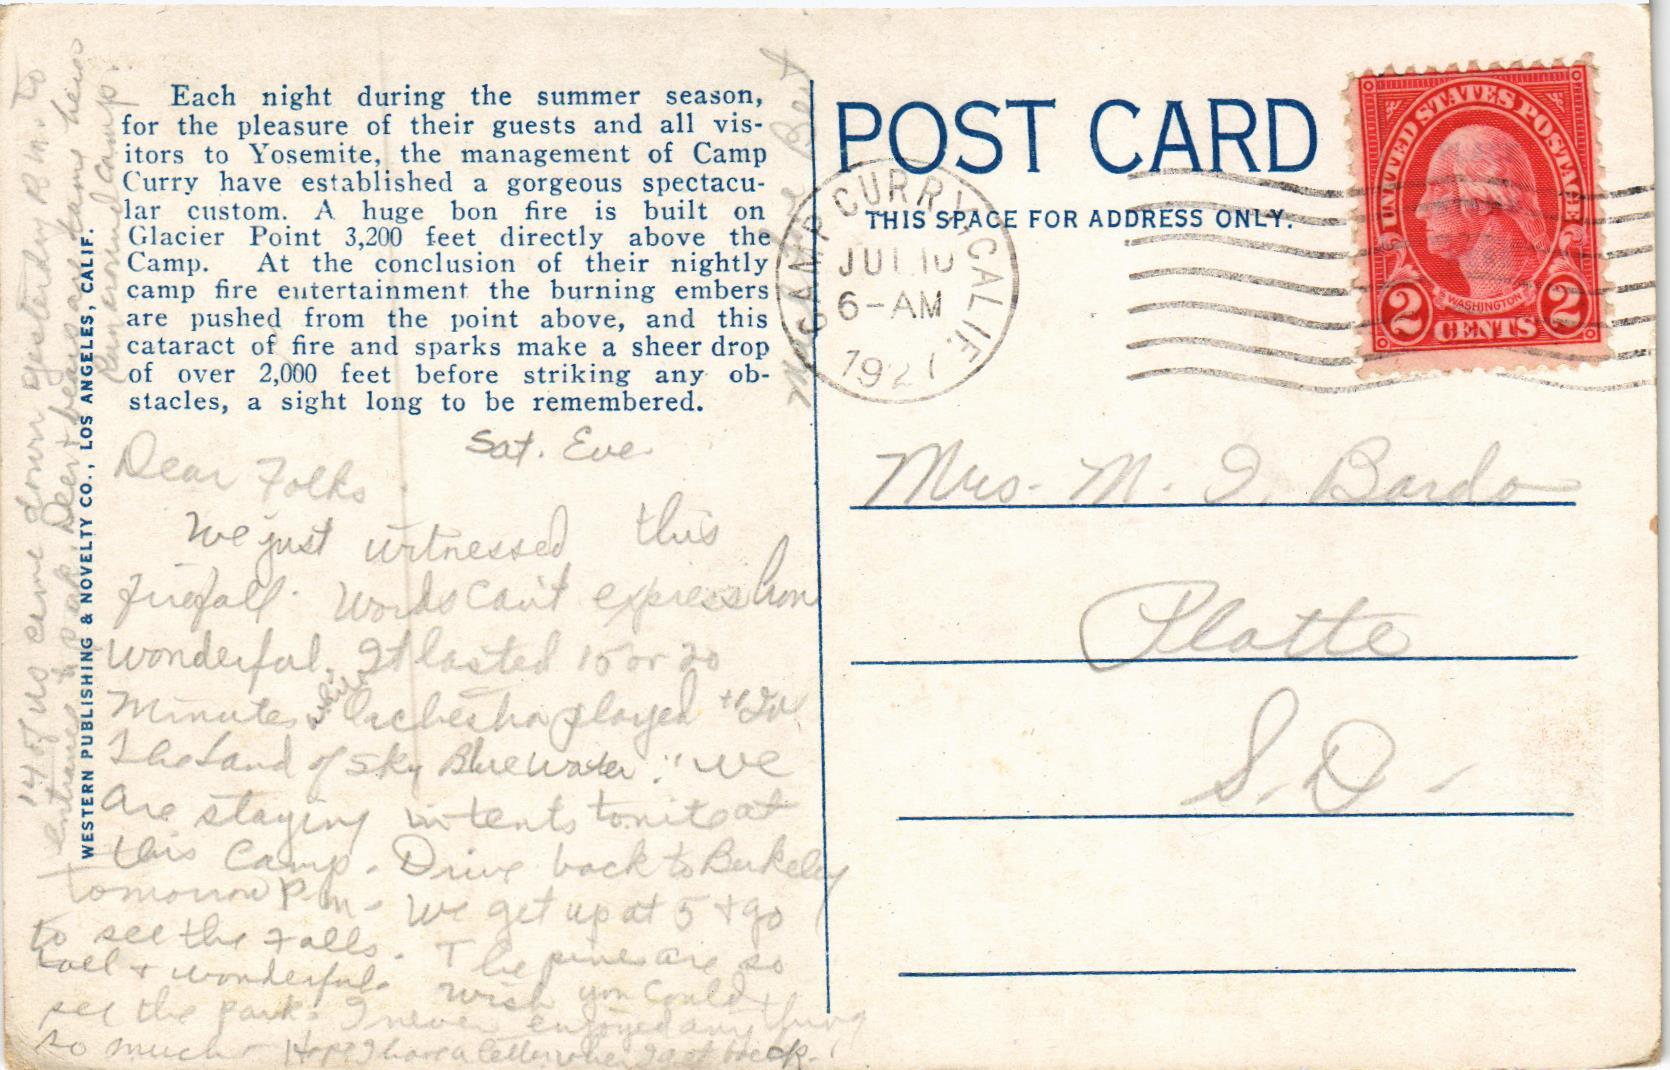 Each night during the summer season,
for the pleasure of their guests and all vis-
itors to Yosemite, the management of Camp
Curry have established a gorgeous spectacu-
lar custom. A huge bon fire is built on
Glacier Point 3,200 feet directly above the
Camp. At the conclusion of their nightly
camp fire entertainment the burning embers
are pushed from the point above, and this
cataract of fire and sparks make a sheer drop
of over 2,000 feet before striking any ob-
stacles, a sight long to be remembered.
Sat. Eve.
Dear Folks.
We just witnessed this
firefall. Words can't express how
wonderful. It lasted 15 or 20
minutes. while Orchestra played
The Land of Sky Blue Water." We
are staying in tents tonite at
this Camp. Drive back to Berkeley
tomorrow P.M. We get up at 5 + go
to see the Falls. The pines are so
tall + wonderful. Wish you could
see the park. I never enjoyed anything
so much - Hope I have a letter when I get back.
14 of us came down yesterday P.M. to
entrance to park. Deer + bears are tame here
around camp.
WESTERN PUBLISHING & NOVELTY CO., LOS ANGELES, CALIF.
POST CARD
THIS SPACE FOR ADDRESS ONLY.
CAMP CURRY CALIF.
JUL 10
6-AM
1927
UNITED STATES POSTAGE
WASHINGTON
2 CENTS 2
Mrs. M. I. Bardo
Platte
S. D.